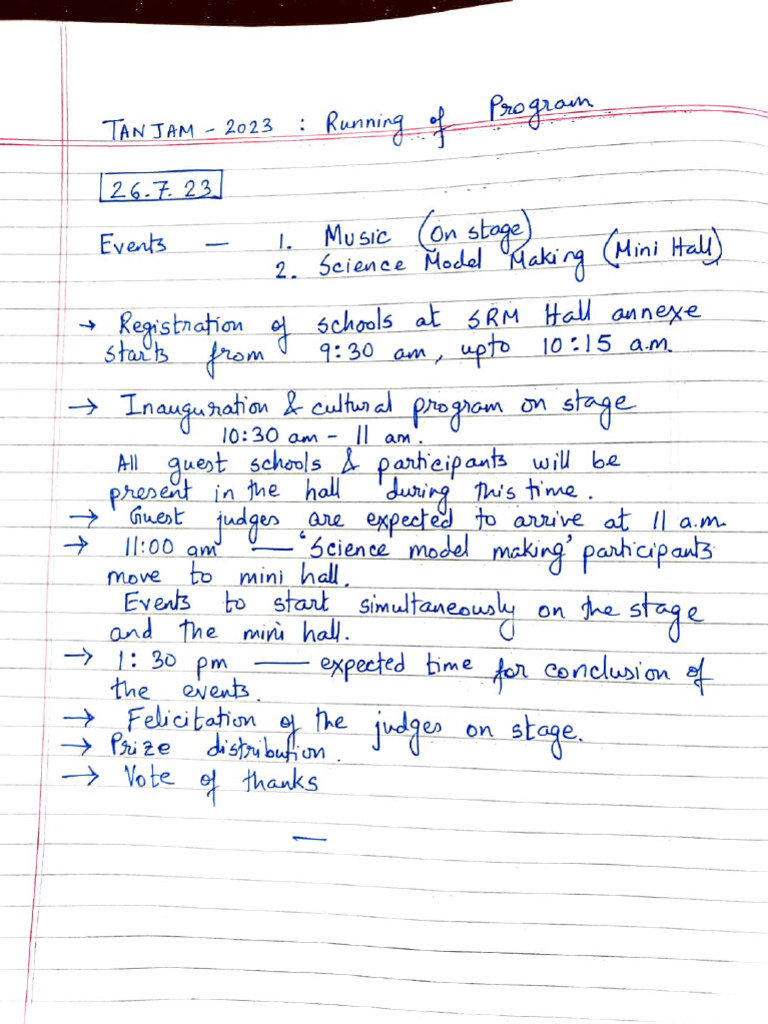 TANJAM - 2023 : Running of Program
26.7.23
Events — 1. Music (On stage)
2. Science Model Making (Mini Hall)
→ Registration of schools at SRM Hall annexe
starts from 9:30 am, upto 10:15 a.m.
→ Inauguration & cultural program on stage
10:30 am - 11 am.
All guest schools & participants will be
present in the hall during this time.
→ Guest judges are expected to arrive at 11 a.m.
→ 11:00 am — 'Science model making' participants
move to mini hall.
Events to start simultaneously on the stage
and the mini hall.
→ 1:30 pm — expected time for conclusion of
the events.
→ Felicitation of the judges on stage.
→ Prize distribution.
→ Vote of thanks
—